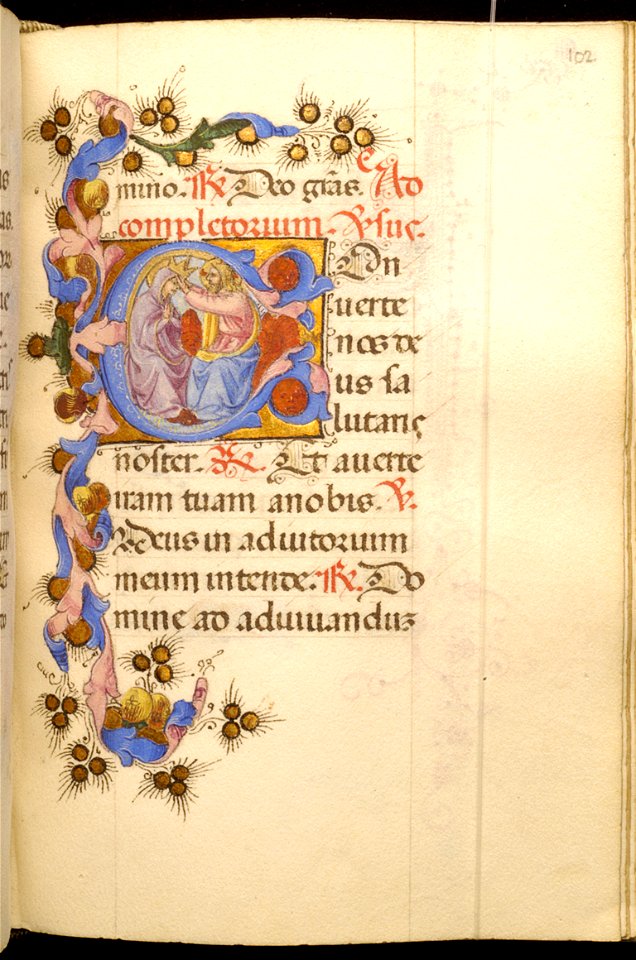 102
mino. R. Deo gr̃as. Ad
completorium. Vsus.
COn
uerte
nos de
us sa
lutaris
noster. R. Et auerte
iram tuam anobis. V.
Deus in adiutorium
meum intende. R. Do
mine ad adiuuanduz